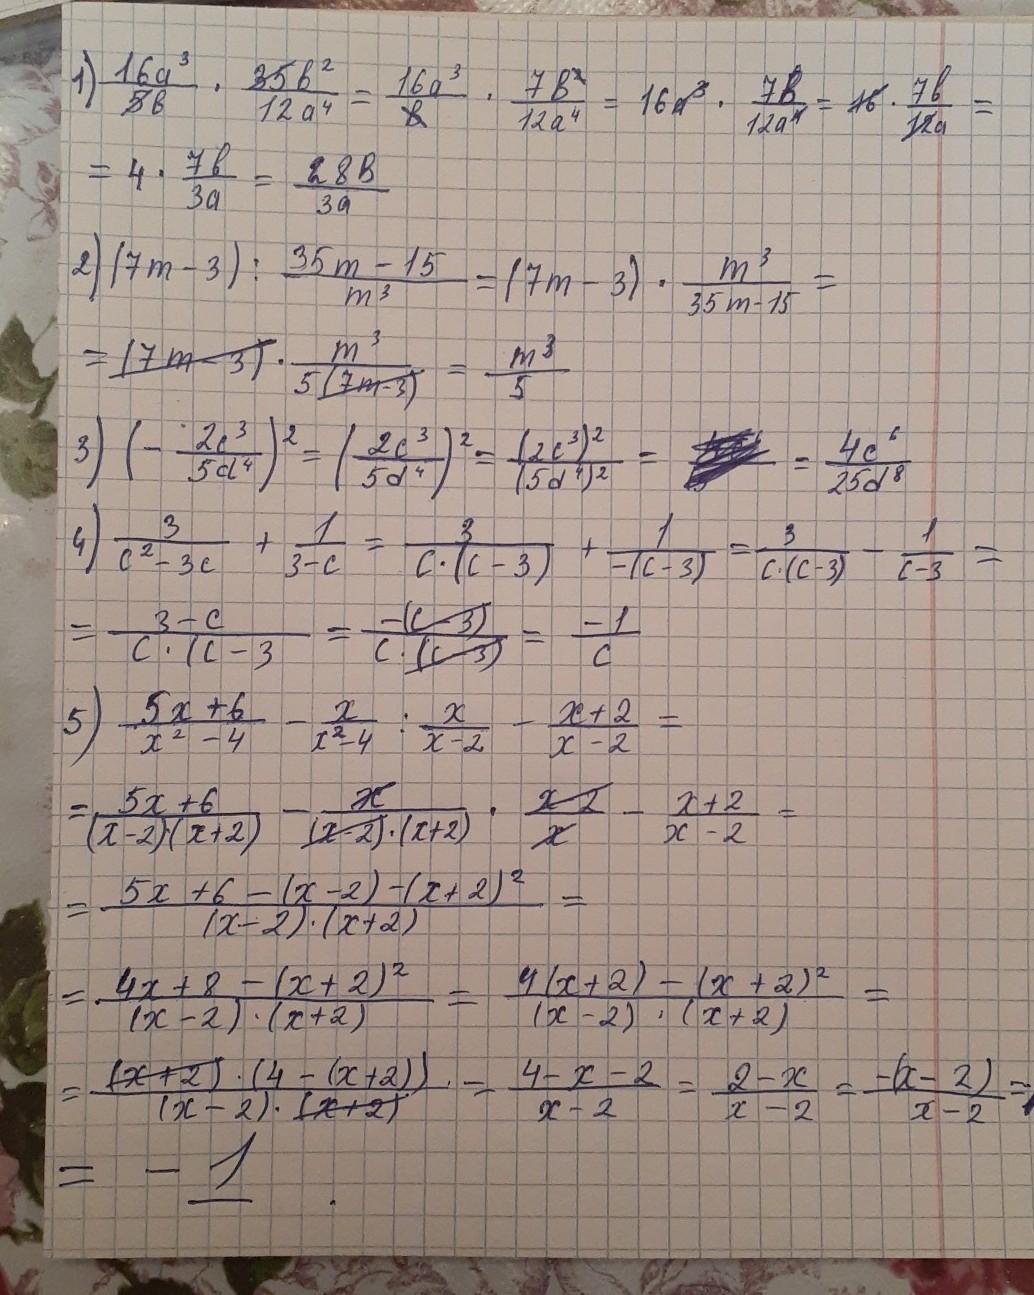 1) 16a³/5b · 35b²/12a⁴ = 16a³/b · 7b²/12a⁴ = 16a³ · 7b/12a⁴ = 16 · 7b/12a =
= 4 · 7b/3a = 28b/3a
2) (7m - 3) : 35m - 15/m³ = (7m - 3) · m³/35m-15 =
= (7m - 3) · m³/5(7m-3) = m³/5
3) (- 2c³/5d⁴)² = (2c³/5d⁴)² = (2c³)²/(5d⁴)² = = 4c⁶/25d⁸
4) 3/c² - 3c + 1/3-c = 3/c·(c-3) + 1/-(c-3) = 3/c·(c-3) - 1/c-3 =
= 3-c/c·(c-3 = -(c-3)/c·(c-3) = -1/c
5) 5x+6/x²-4 - x/x²-4 : x/x-2 - x+2/x-2 =
= 5x+6/(x-2)·(x+2) - x/(x-2)·(x+2) · x-2/x - x+2/x-2 =
= 5x+6-(x-2)-(x+2)²/(x-2)·(x+2) =
= 4x+8-(x+2)²/(x-2)·(x+2) = 4(x+2)-(x+2)²/(x-2)·(x+2) =
= (x+2)·(4-(x+2))/(x-2)·(x+2) = 4-x-2/x-2 = 2-x/x-2 = -(x-2)/x-2 =
= -1.